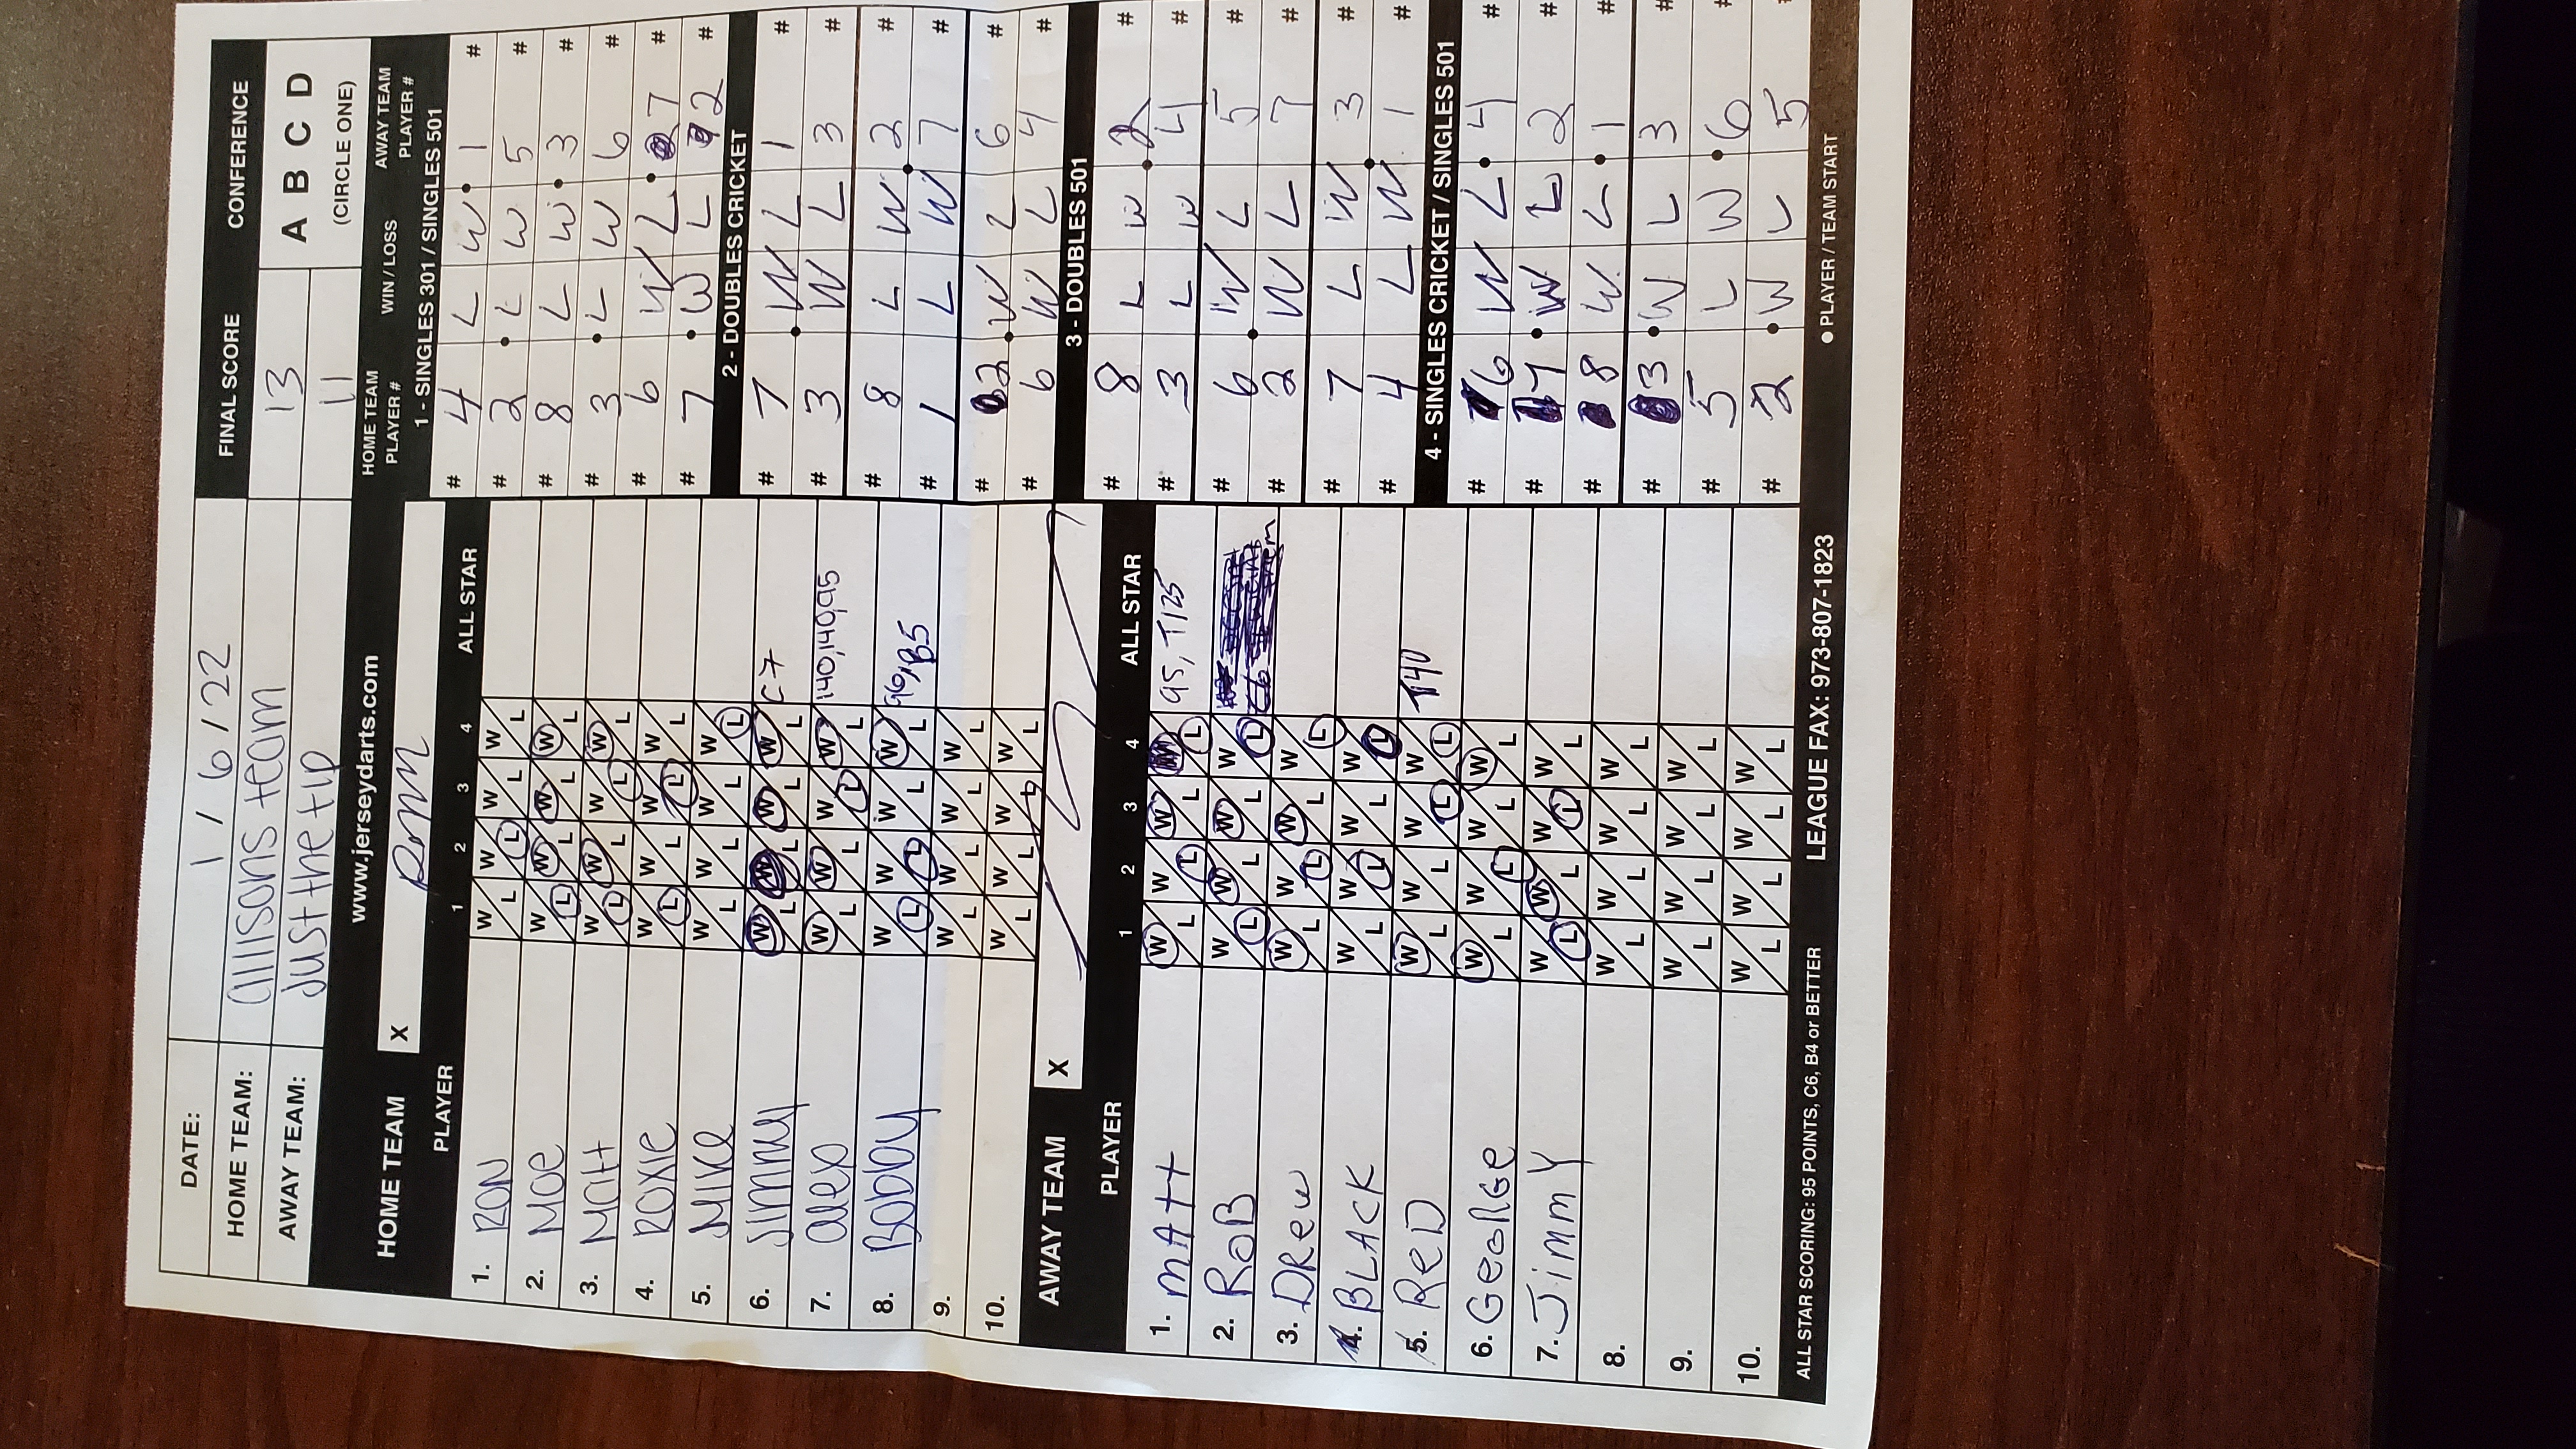 DATE: 1/6/22 FINAL SCORE CONFERENCE
HOME TEAM: allisons team 13 A B C D
AWAY TEAM: Just the tip 11 (CIRCLE ONE)
www.jerseydarts.com
HOME TEAM X
PLAYER 1 2 3 4 ALL STAR
1. RON W L W L W L W L
2. MOE W L W L W L W L
3. Matt W L W L W L W L
4. ROXIE W L W L W L W L
5. MIKE W L W L W L W L
6. JIMMY W L W L W L W L C7
7. alex W L W L W L W L 140,140,95
8. BOBBY W L W L W L W L 96, B5
9. W L W L W L W L
10. W L W L W L W L
AWAY TEAM X
PLAYER 1 2 3 4 ALL STAR
1. MATT W L W L W L L 95, T125
2. ROB W L W L W L W L
3. DRew W L W L W L W L
4. BLACK W L W L W L W L
5. ReD W L W L W L W L T40
6. GeorGe W L W L W L W L
7. JimmY W L W L W L W L
8. W L W L W L W L
9. W L W L W L W L
10. W L W L W L W L
HOME TEAM PLAYER # WIN / LOSS AWAY TEAM PLAYER #
1 - SINGLES 301 / SINGLES 501
# 4 L W 1 #
# 2 L W 5 #
# 8 L W 3 #
# 3 L W 6 #
# 6 W L 7 #
# 7 W L 2 #
2 - DOUBLES CRICKET
# 7 W L 1 #
# 3 W L 3 #
# 8 L W 2 #
# 1 L W 7 #
# 2 W L 6 #
# 6 W L 4 #
3 - DOUBLES 501
# 8 L W 2 #
# 3 L W 4 #
# 6 W L 5 #
# 2 W L 7 #
# 7 L W 3 #
# 4 L W 1 #
4 - SINGLES CRICKET / SINGLES 501
# 6 W L 4 #
# 7 W L 2 #
# 8 W L 1 #
# 3 W L 3 #
# 5 L W 6 #
# 2 W L 5
ALL STAR SCORING: 95 POINTS, C6, B4 or BETTER LEAGUE FAX: 973-807-1823 ● PLAYER / TEAM START